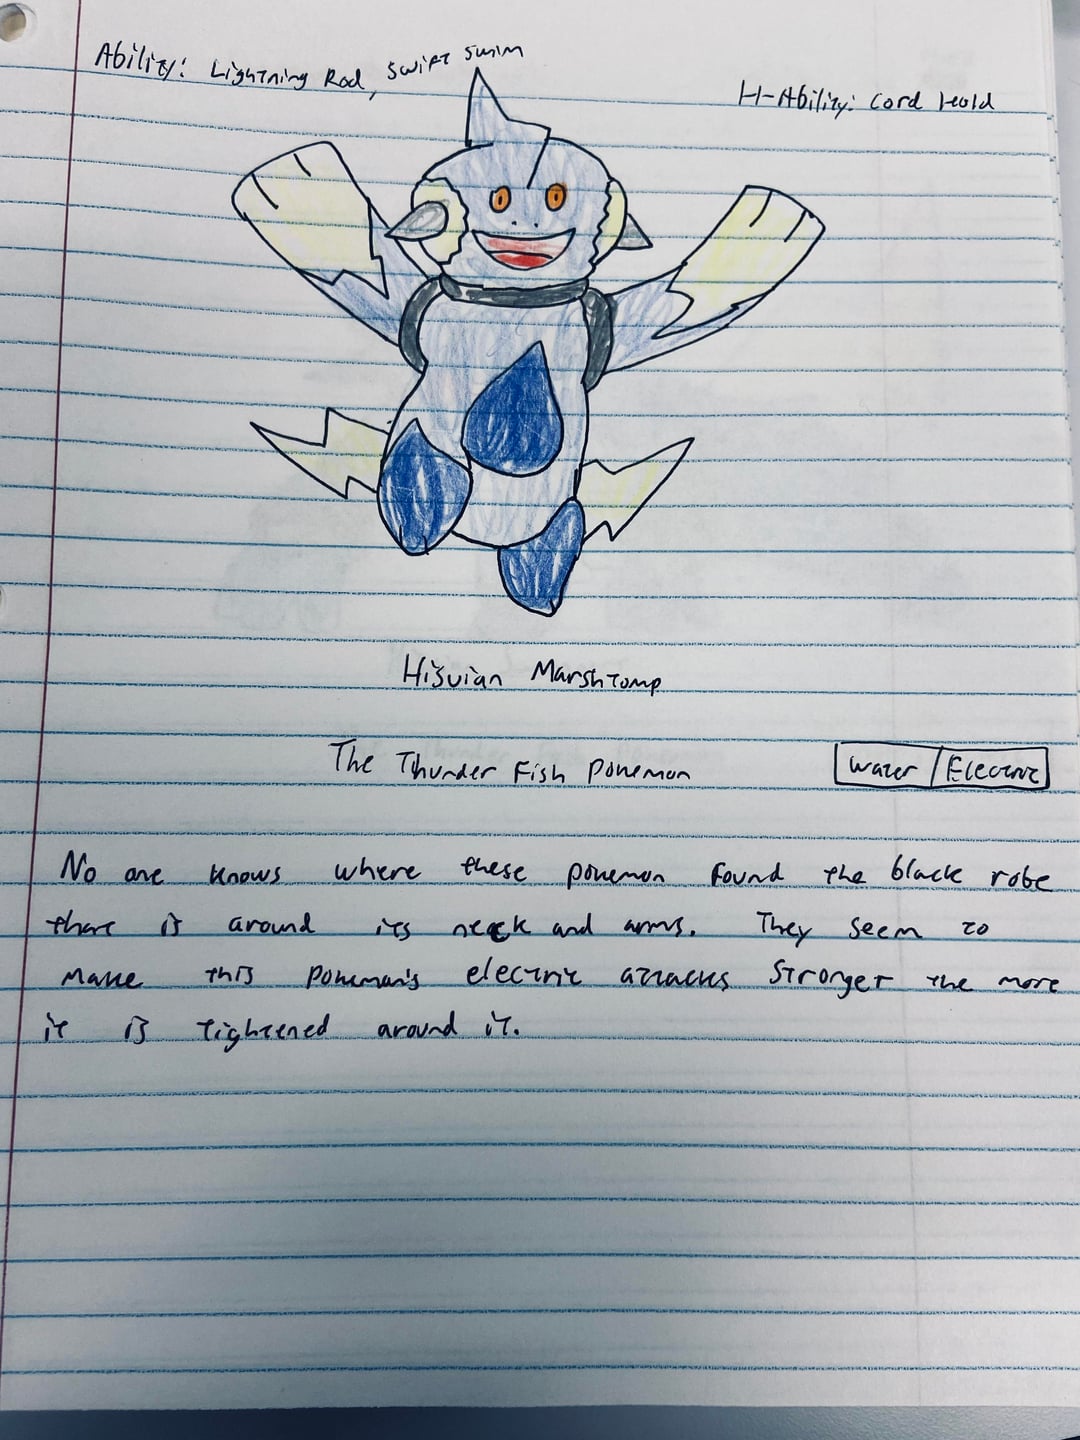 Ability: Lightning Rod, Swift Swim
H-Ability: Cord Hold
Hisuian Marshtomp
The Thunder Fish Pokemon
Water / Electric
No one knows where these pokemon found the black robe
that is around its neck and arms. They seem to
make this pokemon's electric attacks stronger the more
it is tightened around it.